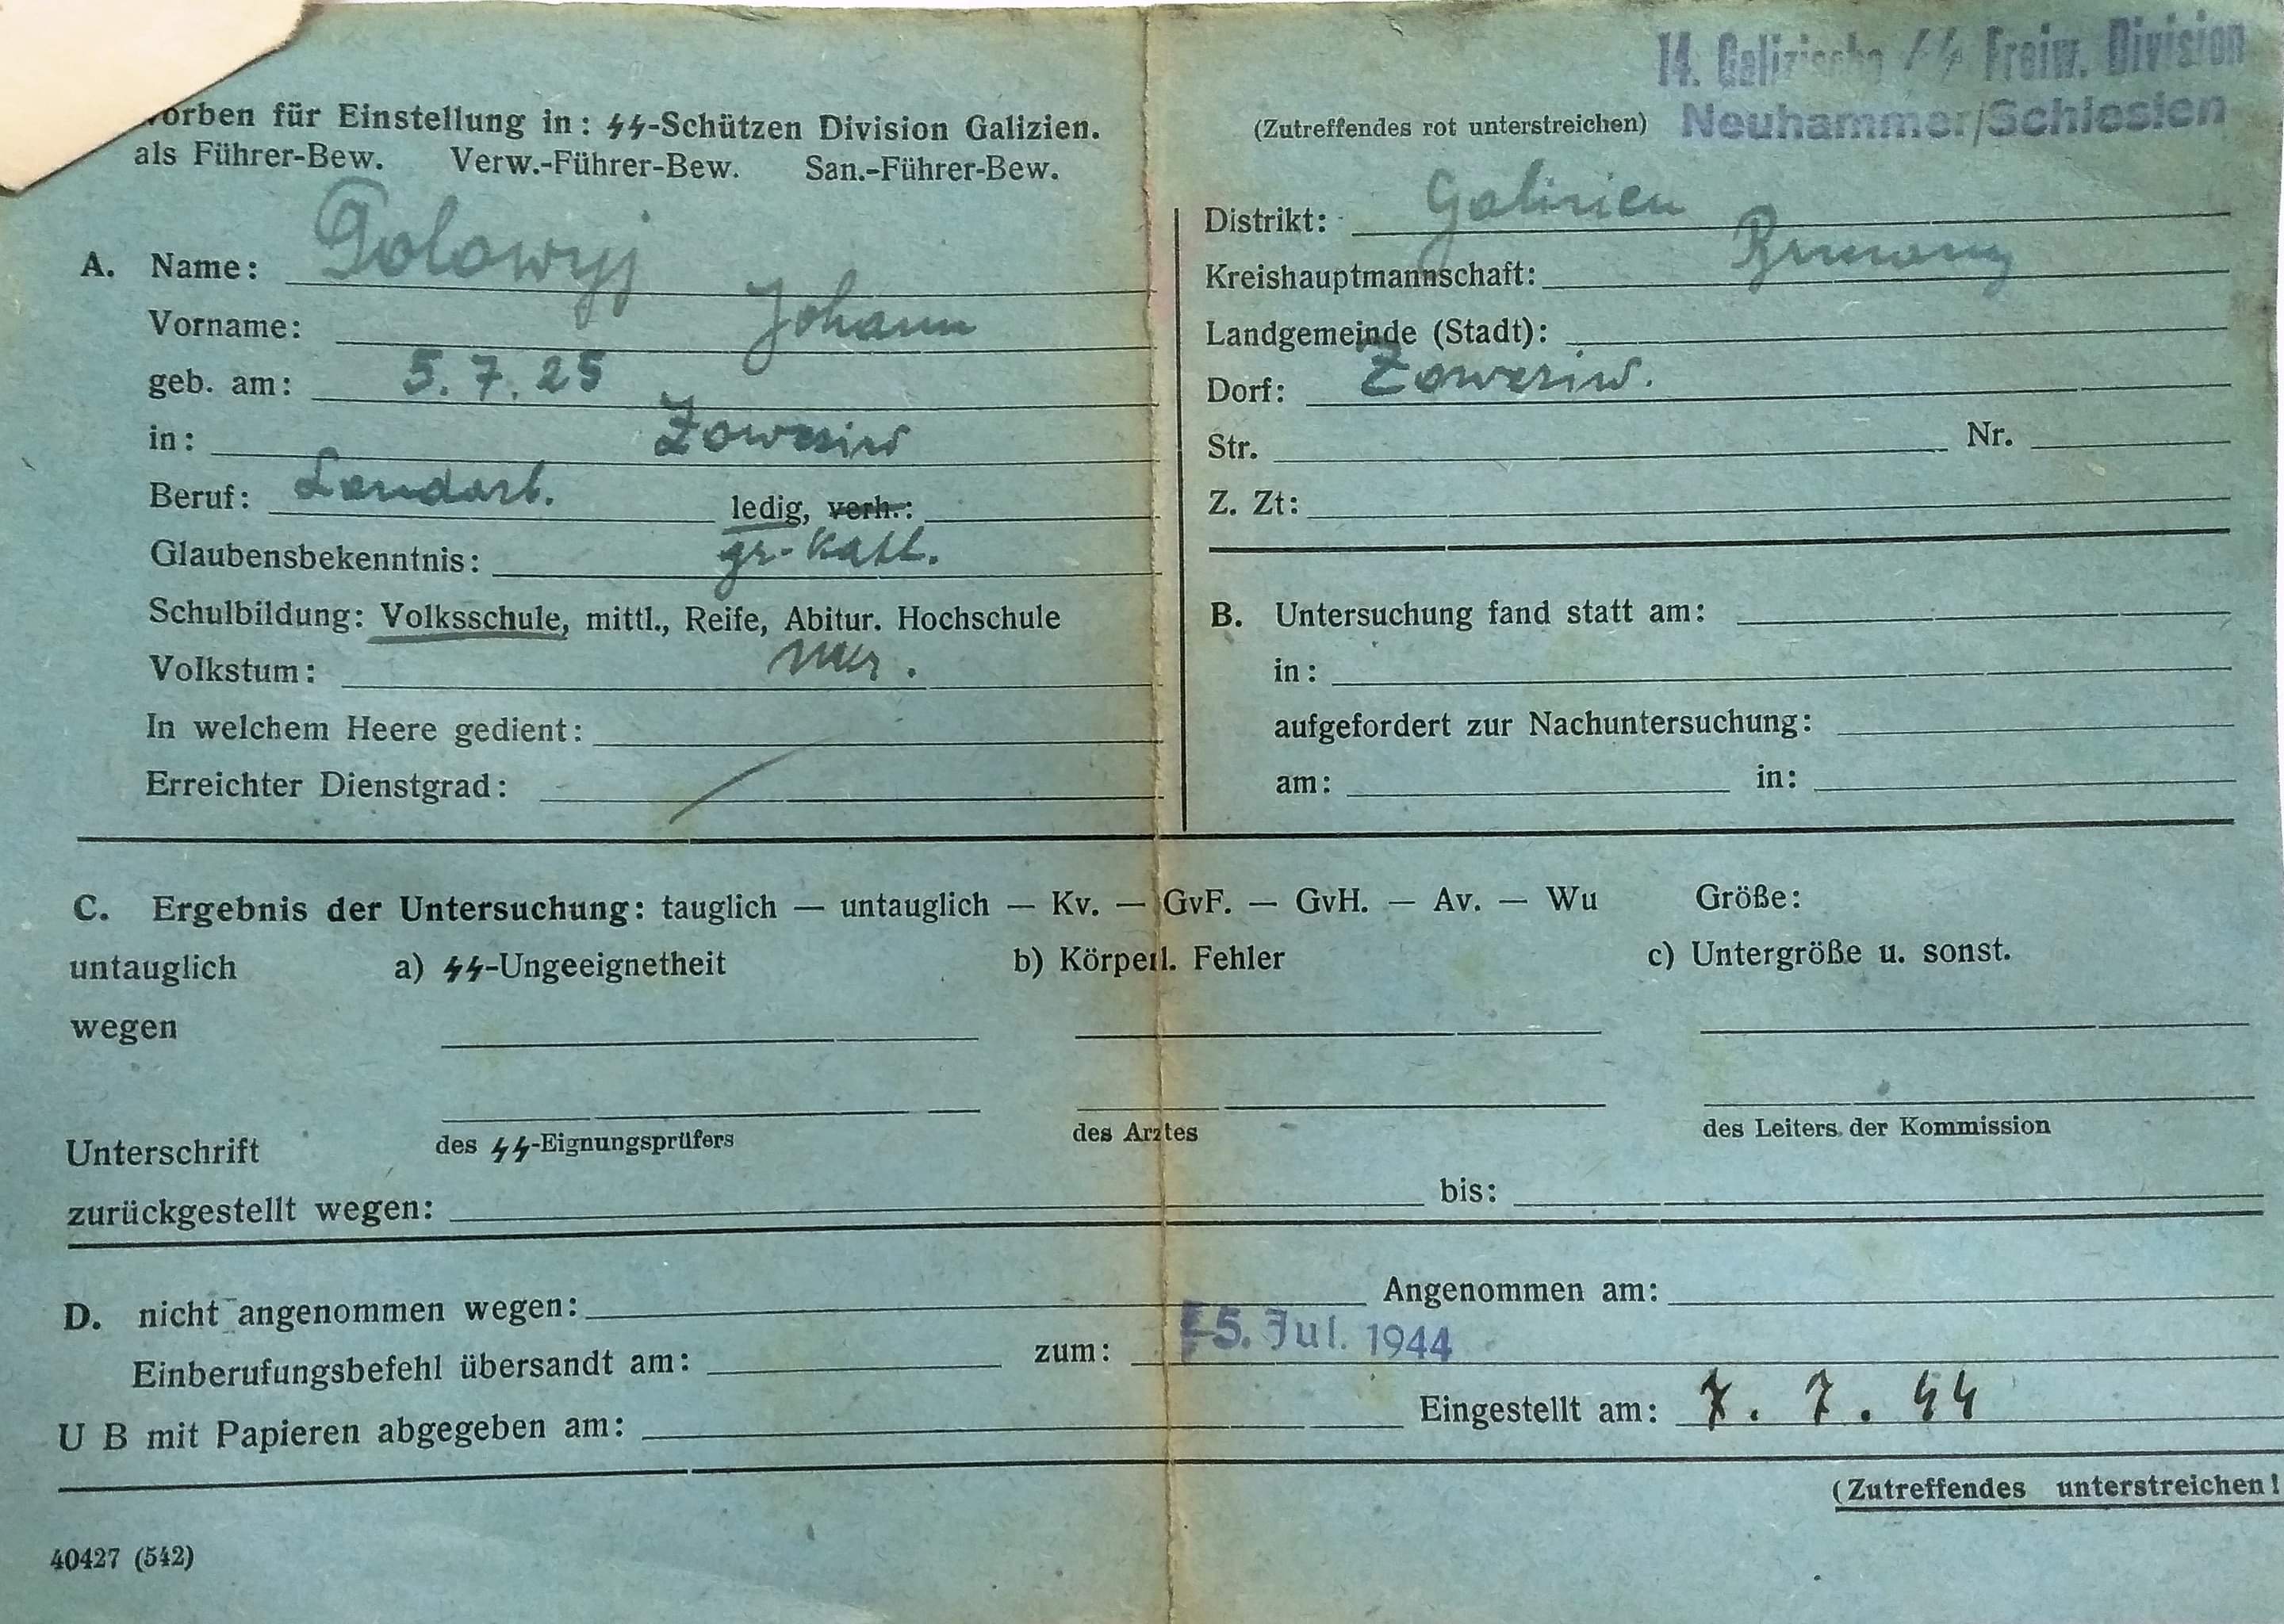 14. Galizische ᛋᛋ Freiw. Division
Neuhammer/Schlesien
orben für Einstellung in: ᛋᛋ-Schützen Division Galizien.
(Zutreffendes rot unterstreichen)
als Führer-Bew. Verw.-Führer-Bew. San.-Führer-Bew.
A. Name:
Vorname: Johann
geb. am: 5.7.25
in: Zowesiw
Beruf: Landarb. ledig, verh.:
Glaubensbekenntnis: gr-kath.
Schulbildung: Volksschule, mittl., Reife, Abitur. Hochschule
Volkstum:
In welchem Heere gedient:
Erreichter Dienstgrad:
Distrikt: Galizien
Kreishauptmannschaft:
Landgemeinde (Stadt):
Dorf: Zowesiw.
Str. Nr.
Z. Zt:
B. Untersuchung fand statt am:
in:
aufgefordert zur Nachuntersuchung:
am: in:
C. Ergebnis der Untersuchung: tauglich — untauglich — Kv. — GvF. — GvH. — Av. — Wu Größe:
untauglich a) ᛋᛋ-Ungeeignetheit b) Körperl. Fehler c) Untergröße u. sonst.
wegen
Unterschrift des ᛋᛋ-Eignungsprüfers des Arztes des Leiters der Kommission
zurückgestellt wegen: bis:
D. nicht angenommen wegen: Angenommen am:
Einberufungsbefehl übersandt am: zum: -5. Jul. 1944
U B mit Papieren abgegeben am: Eingestellt am: 7. 7. 44
(Zutreffendes unterstreichen!
40427 (542)